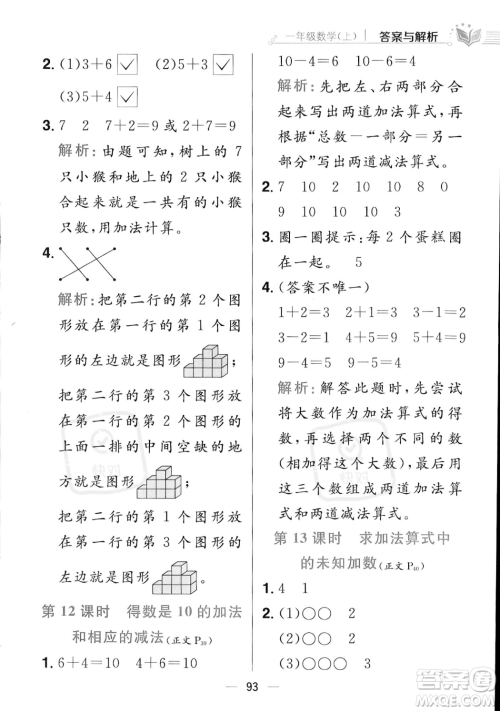 一年级数学(上) 答案与解析
2. (1)3+6☑ (2)5+3☑
(3)5+4☑
3. 7 2 7+2=9 或 2+7=9
解析：由题可知，树上的 7
只小猴和地上的 2 只小猴
合起来就是一共有的小猴
只数，用加法计算。
4.
解析：把第二行的第 2 个图
形放在第一行的第 1 个图
形的左边就是图形；
把第二行的第 3 个图形放
在第一行的第 2 个图形的
上面一排的中间空缺的地
方就是图形；
把第二行的第 1 个图形放
在第一行的第 3 个图形的
左边就是图形。
第 12 课时 得数是 10 的加法
和相应的减法(正文 P39)
1. 6+4=10 4+6=10
10-4=6 10-6=4
解析：先把左、右两部分合
起来写出两道加法算式，再
根据“总数-一部分=另一
部分”写出两道减法算式。
2. 7 10 10 10 8 0
9 10 10 10 10
3. 圈一圈提示：每 2 个蛋糕圈
在一起。 5
4. (答案不唯一)
1+2=3 2+1=3 3-1=2
3-2=1 4+5=9 5+4=9
9-4=5 9-5=4
解析：解答此题时，先尝试
将大数作为加法算式的得
数，再找出两个不同的数
(相加得这个大数)，最后用
这三个数组成两道加法算
式和两道减法算式。
第 13 课时 求加法算式中
的未知加数(正文 P40)
1. 4 1
2. (1)○○ 2
(2)○○ 2
(3)○○ 2
93
答案圈